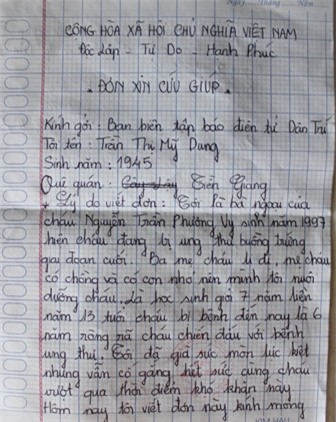 CỘNG HÒA XÃ HỘI CHỦ NGHĨA VIỆT NAM
Độc Lập - Tự Do - Hạnh Phúc
ĐƠN XIN CỨU GIÚP
Kính gởi: Ban biên tập báo điện tử Dân Trí
Tôi tên: Trần Thị Mỹ Dung
Sinh năm: 1945
Quê quán: Tiền Giang
+ Lý do viết đơn: Tôi là bà ngoại của
cháu Nguyễn Trần Phương Vy sinh năm 1997
hiện cháu đang bị ung thư buồng trứng
giai đoạn cuối. Ba mẹ cháu li dị, mẹ cháu
có chồng và có con nhỏ nên mình tôi nuôi
dưỡng cháu. Là học sinh giỏi 7 năm liền
năm 13 tuổi cháu bị bệnh đến nay là 6
năm ròng rã cháu chiến đấu với bệnh
ung thư. Tôi đã già sức mòn lực kiệt
nhưng vẫn cố gắng hết sức cùng cháu
vượt qua thời điểm khó khăn này
Hôm nay tôi viết đơn này kính mong